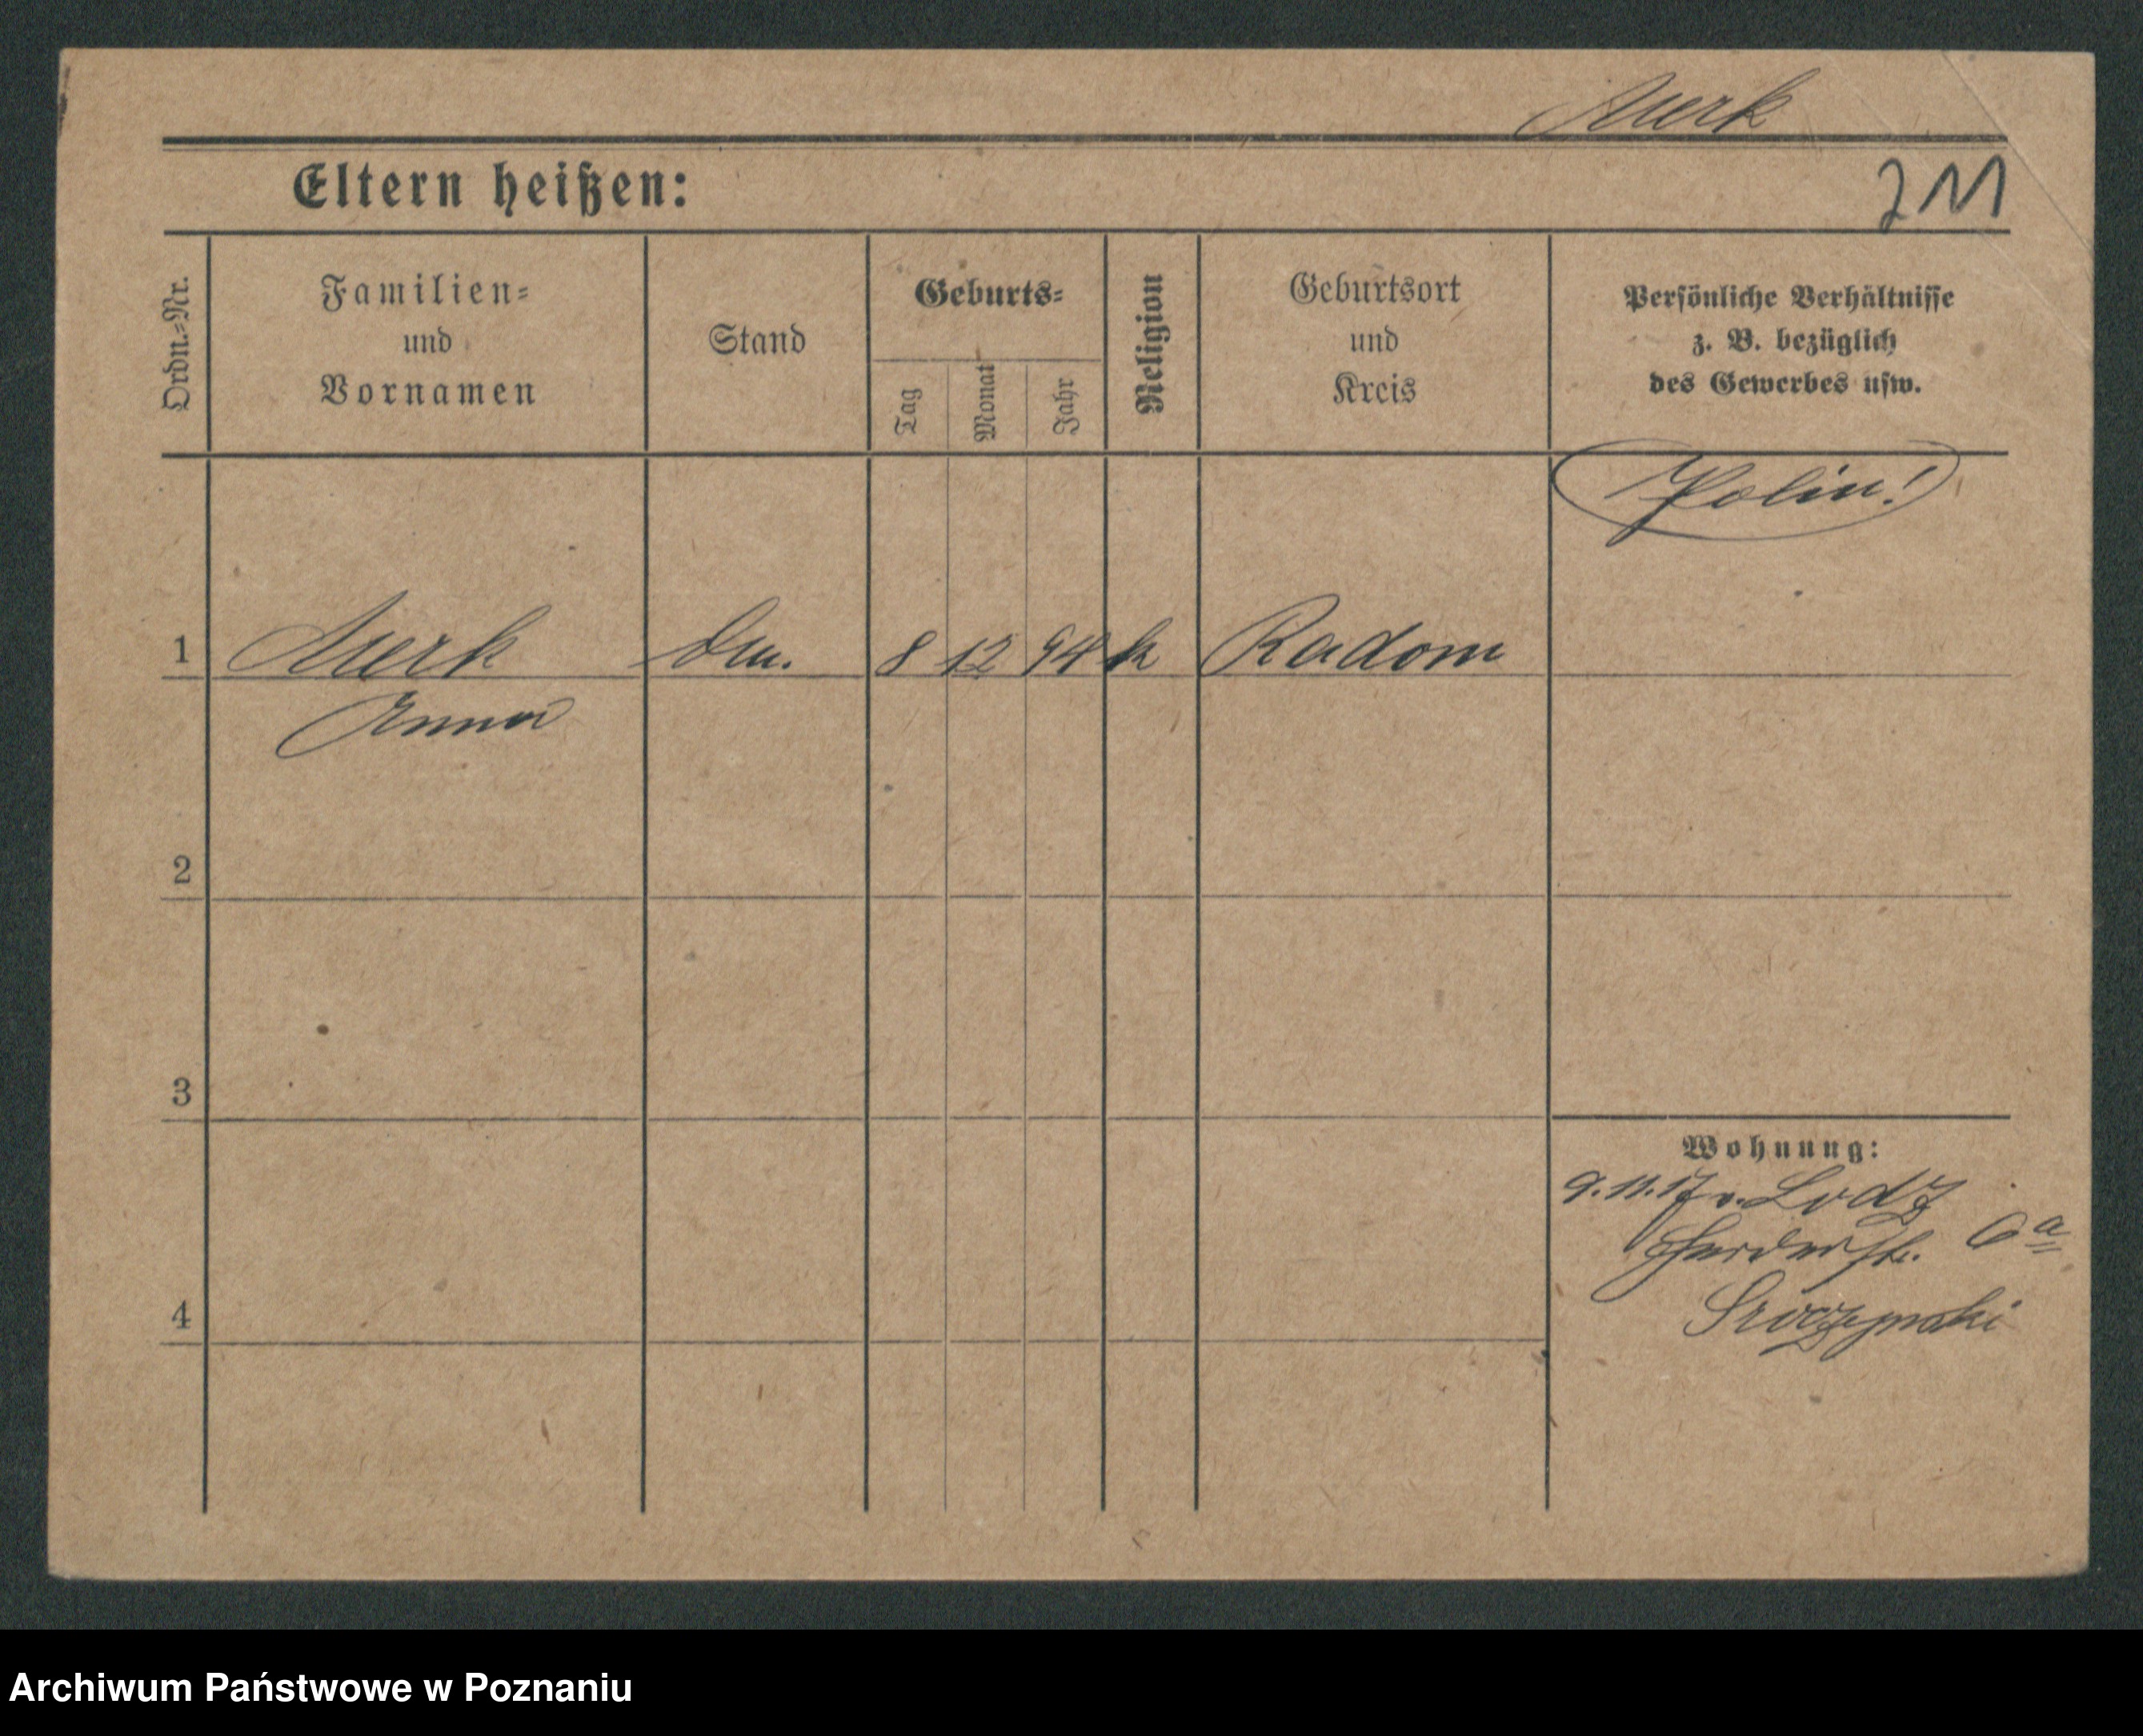 Merk
Eltern heißen:
211
Ordn.-Nr.
Familien-
und
Vornamen
Stand
Geburts-
Tag
Monat
Jahr
Religion
Geburtsort
und
Kreis
Persönliche Verhältnisse
z. B. bezüglich
des Gewerbes usw.
Polin!
1 Merk 8 12 94 k Radom
Anna
2
3
4
Wohnung:
9.11.17 v. Lodz
Herderstr. 6a
Archiwum Państwowe w Poznaniu